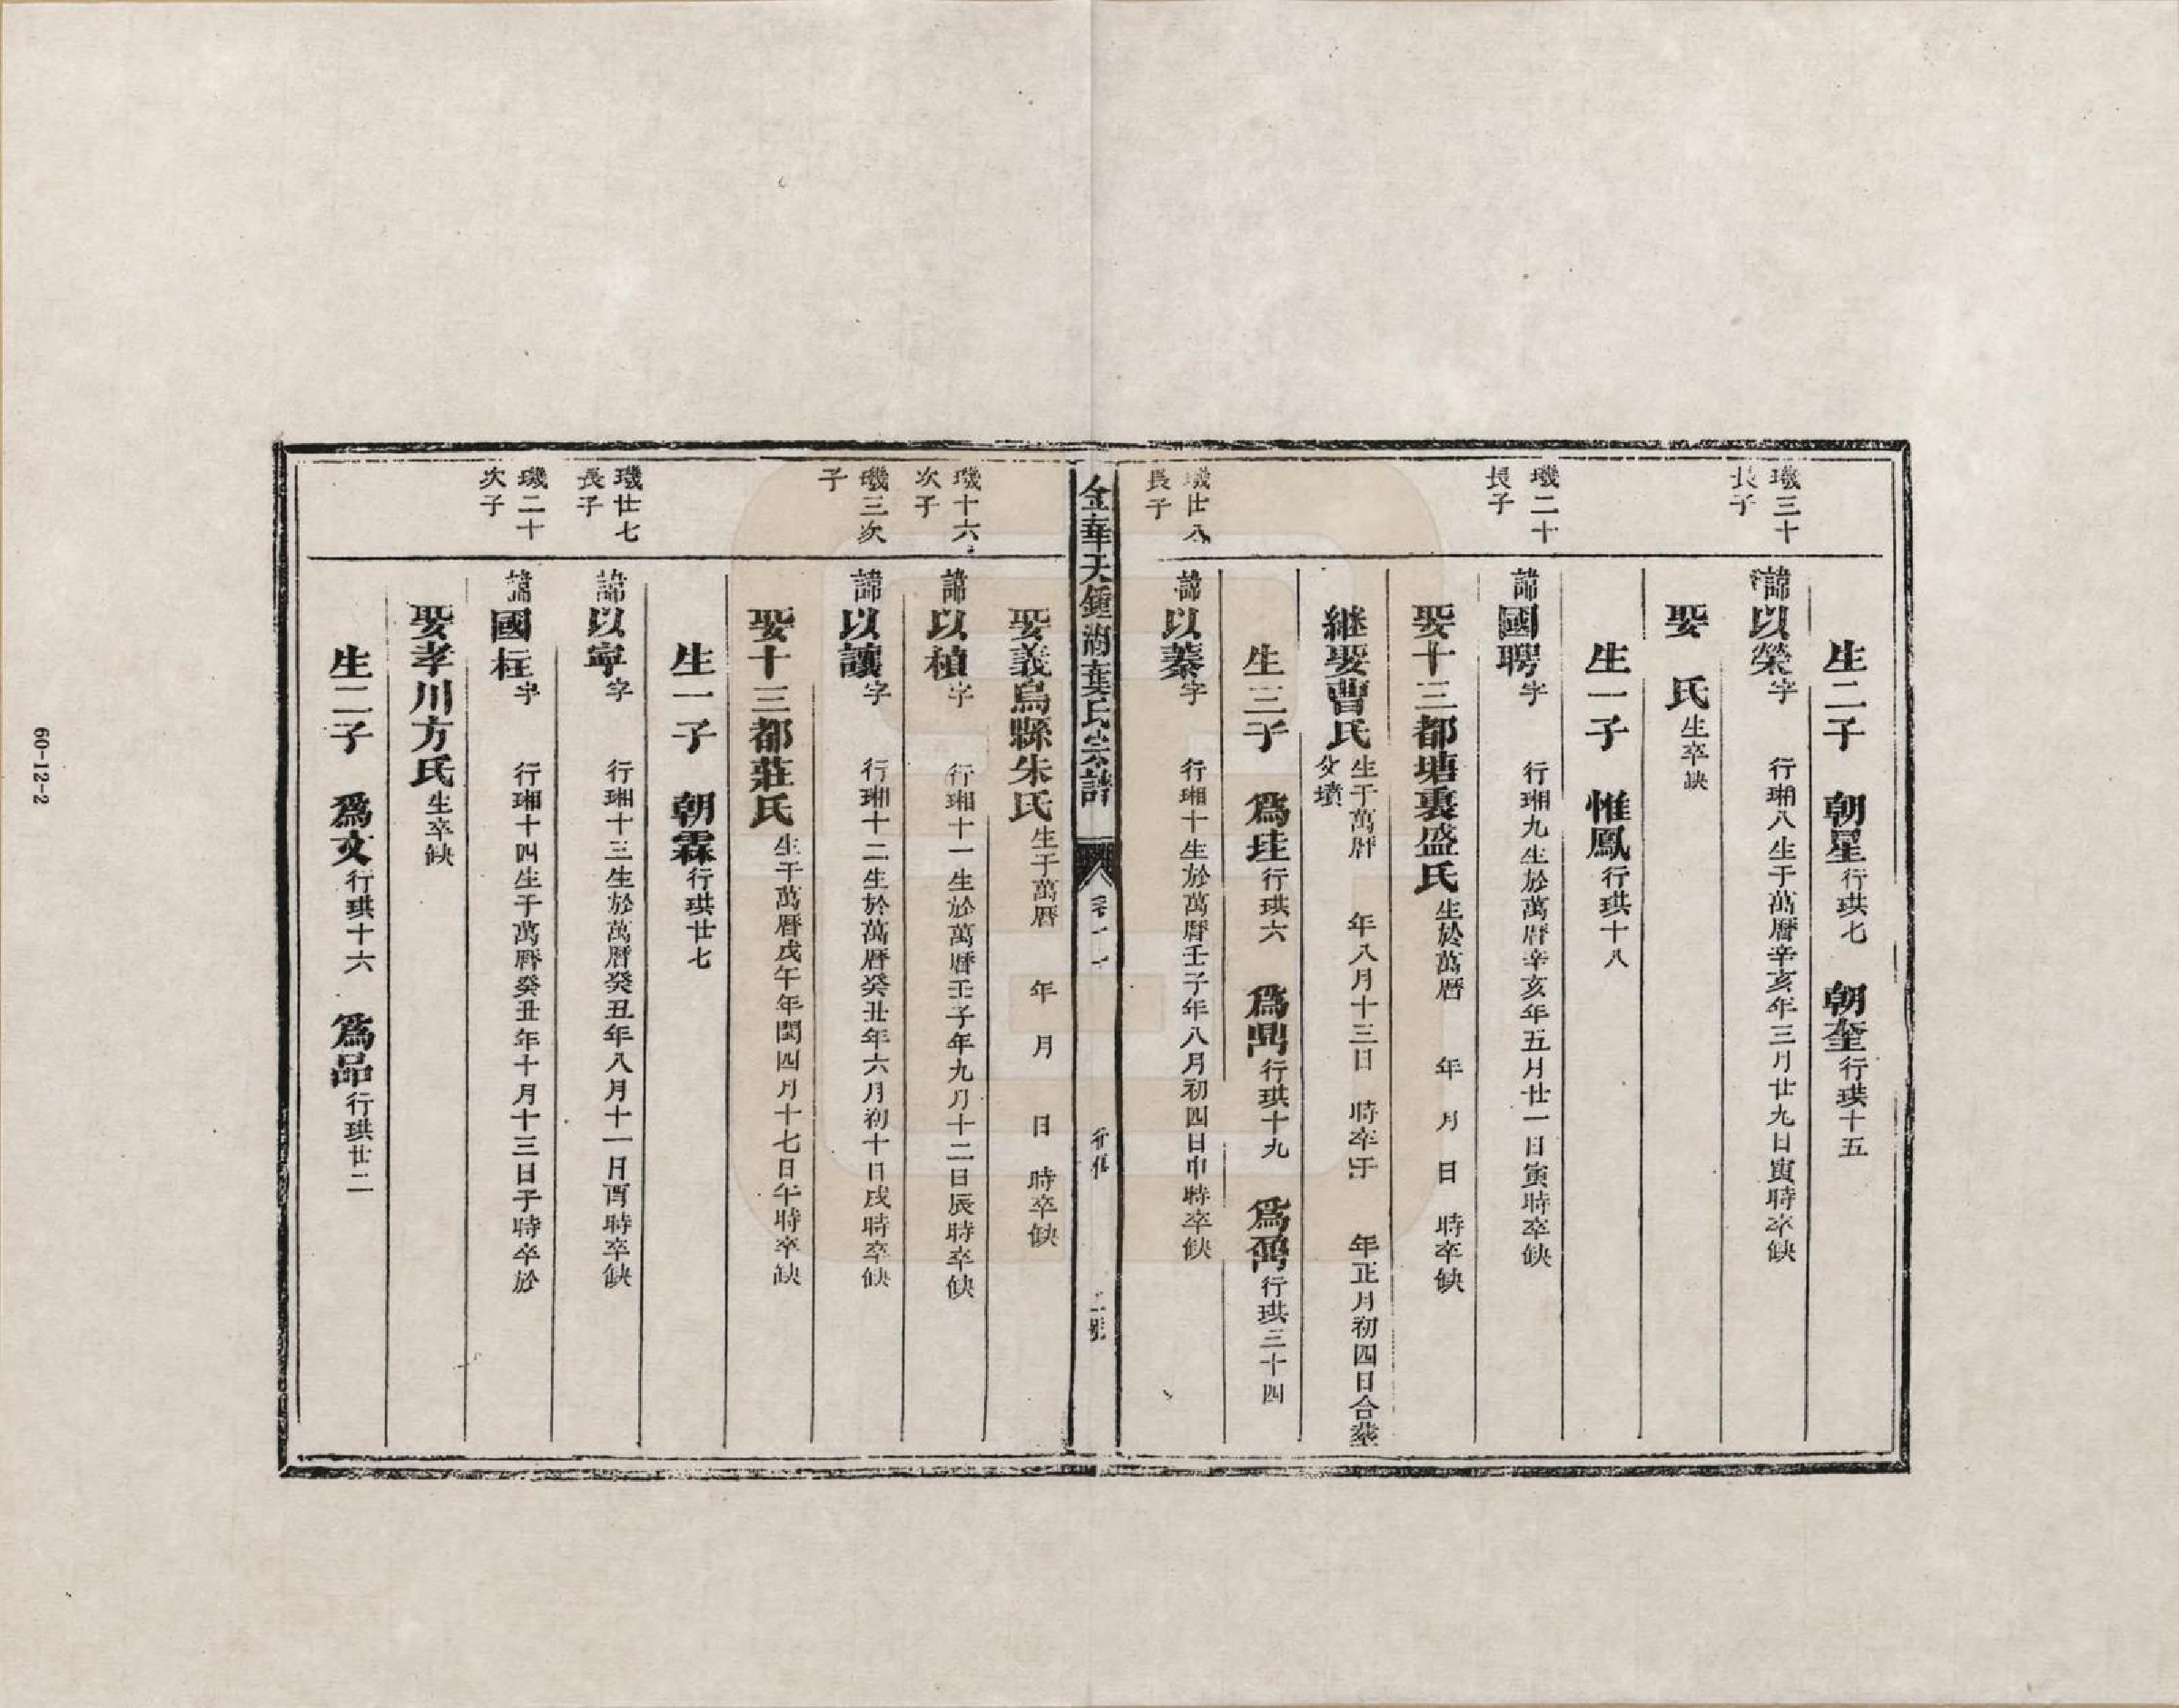 生二子　朝星行珙七　朝奎行珙十五
璣三十長子
諱以榮字　行瑚八生于萬曆辛亥年三月廿九日寅時卒缺
娶　氏生卒缺
生一子　惟鳳行珙十八
璣二十長子
諱國聘字　行瑚九生於萬曆辛亥年五月廿一日寅時卒缺
娶十三都塘裏盛氏生於萬曆　年　月　日　時卒缺
継娶曹氏生于萬曆　年八月十三日　時卒于　年正月初四日合塟
父墳
生三子　爲珪行珙六　爲鼎行珙十九　爲鼐行珙三十四
璣廿八長子
諱以蓁字　行瑚十生於萬曆壬子年八月初四日申時卒缺
金華天鍾湖葉氏宗譜　卷十　行傳　二號
娶義烏縣朱氏生于萬曆　年　月　日　時卒缺
璣十六次子
諱以楨字　行瑚十一生於萬曆壬子年九月十二日辰時卒缺
璣三次子
諱以讓字　行瑚十二生於萬曆癸丑年六月初十日戌時卒缺
娶十三都莊氏生于萬曆戊午年閏四月十七日午時卒缺
生一子　朝霖行珙廿七
璣廿七長子
諱以寧字　行瑚十三生於萬曆癸丑年八月十一日酉時卒缺
璣二十次子
諱國柱字　行瑚十四生于萬曆癸丑年十月十三日子時卒於
娶孝川方氏生卒缺
生二子　爲文行珙十六　爲品行珙廿二
60-12-2